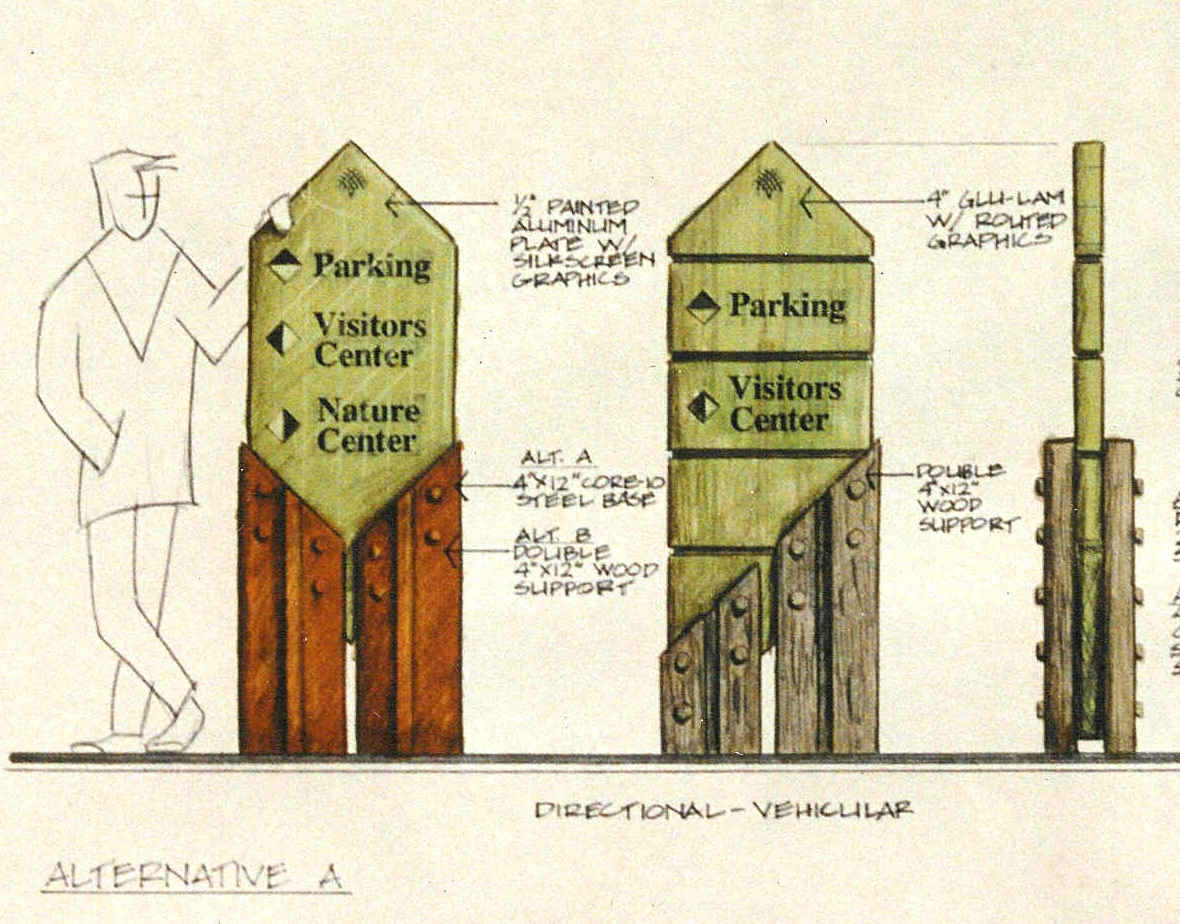 Parking
Visitors
Center
Nature
Center
½" PAINTED
ALUMINUM
PLATE W/
SILKSCREEN
GRAPHICS
ALT. A
4"X12" CORE-10
STEEL BASE
ALT. B
DOUBLE
4"X12" WOOD
SUPPORT
Parking
Visitors
Center
4" GLU-LAM
W/ ROUTED
GRAPHICS
DOUBLE
4"X12"
WOOD
SUPPORT
DIRECTIONAL - VEHICULAR
ALTERNATIVE A